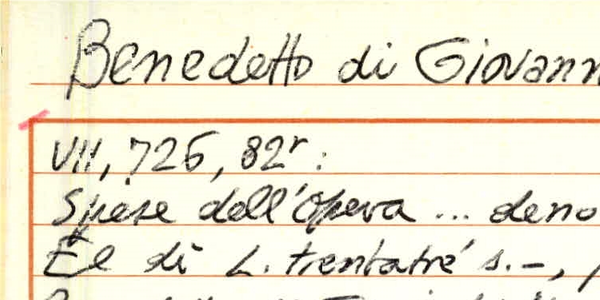 Benedetto di Giovann
VII, 726, 82r:
Spese dell'Opera ... deno
E e di L. trentatré s.-,